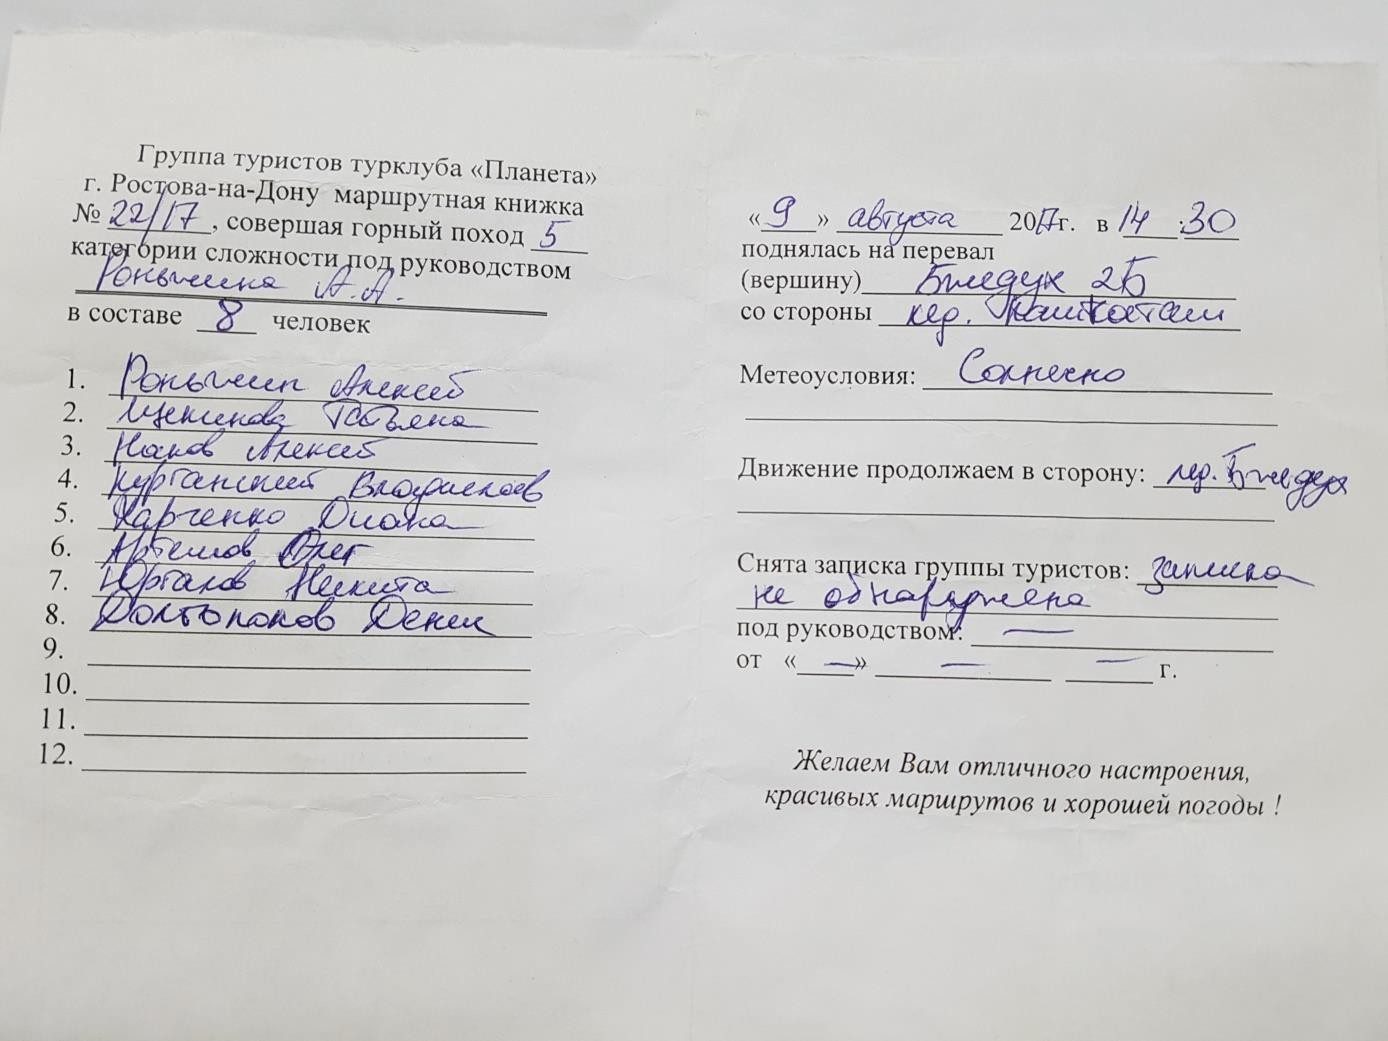 Группа туристов турклуба «Планета»
г. Ростова-на-Дону маршрутная книжка
№ 22/17, совершая горный поход 5
категории сложности под руководством
Роньшина А.А.
в составе 8 человек
1. Роньшин Алексей
2. Щекинова Татьяна
3. Алексей
4. Курганский Владислав
5. Харченко Диана
6. Артемов Олег
7. Юргалов Никита
8. Долгополов Денис
9.
10.
11.
12.
«9» августа 2017г. в 14:30
поднялась на перевал
(вершину) Бжедух 2Б
со стороны лед. Кашкаташ
Метеоусловия: Солнечно
Движение продолжаем в сторону: лед. Бжедух
Снята записка группы туристов: записка
не обнаружена
под руководством: —
от «—» — — г.
Желаем Вам отличного настроения,
красивых маршрутов и хорошей погоды !